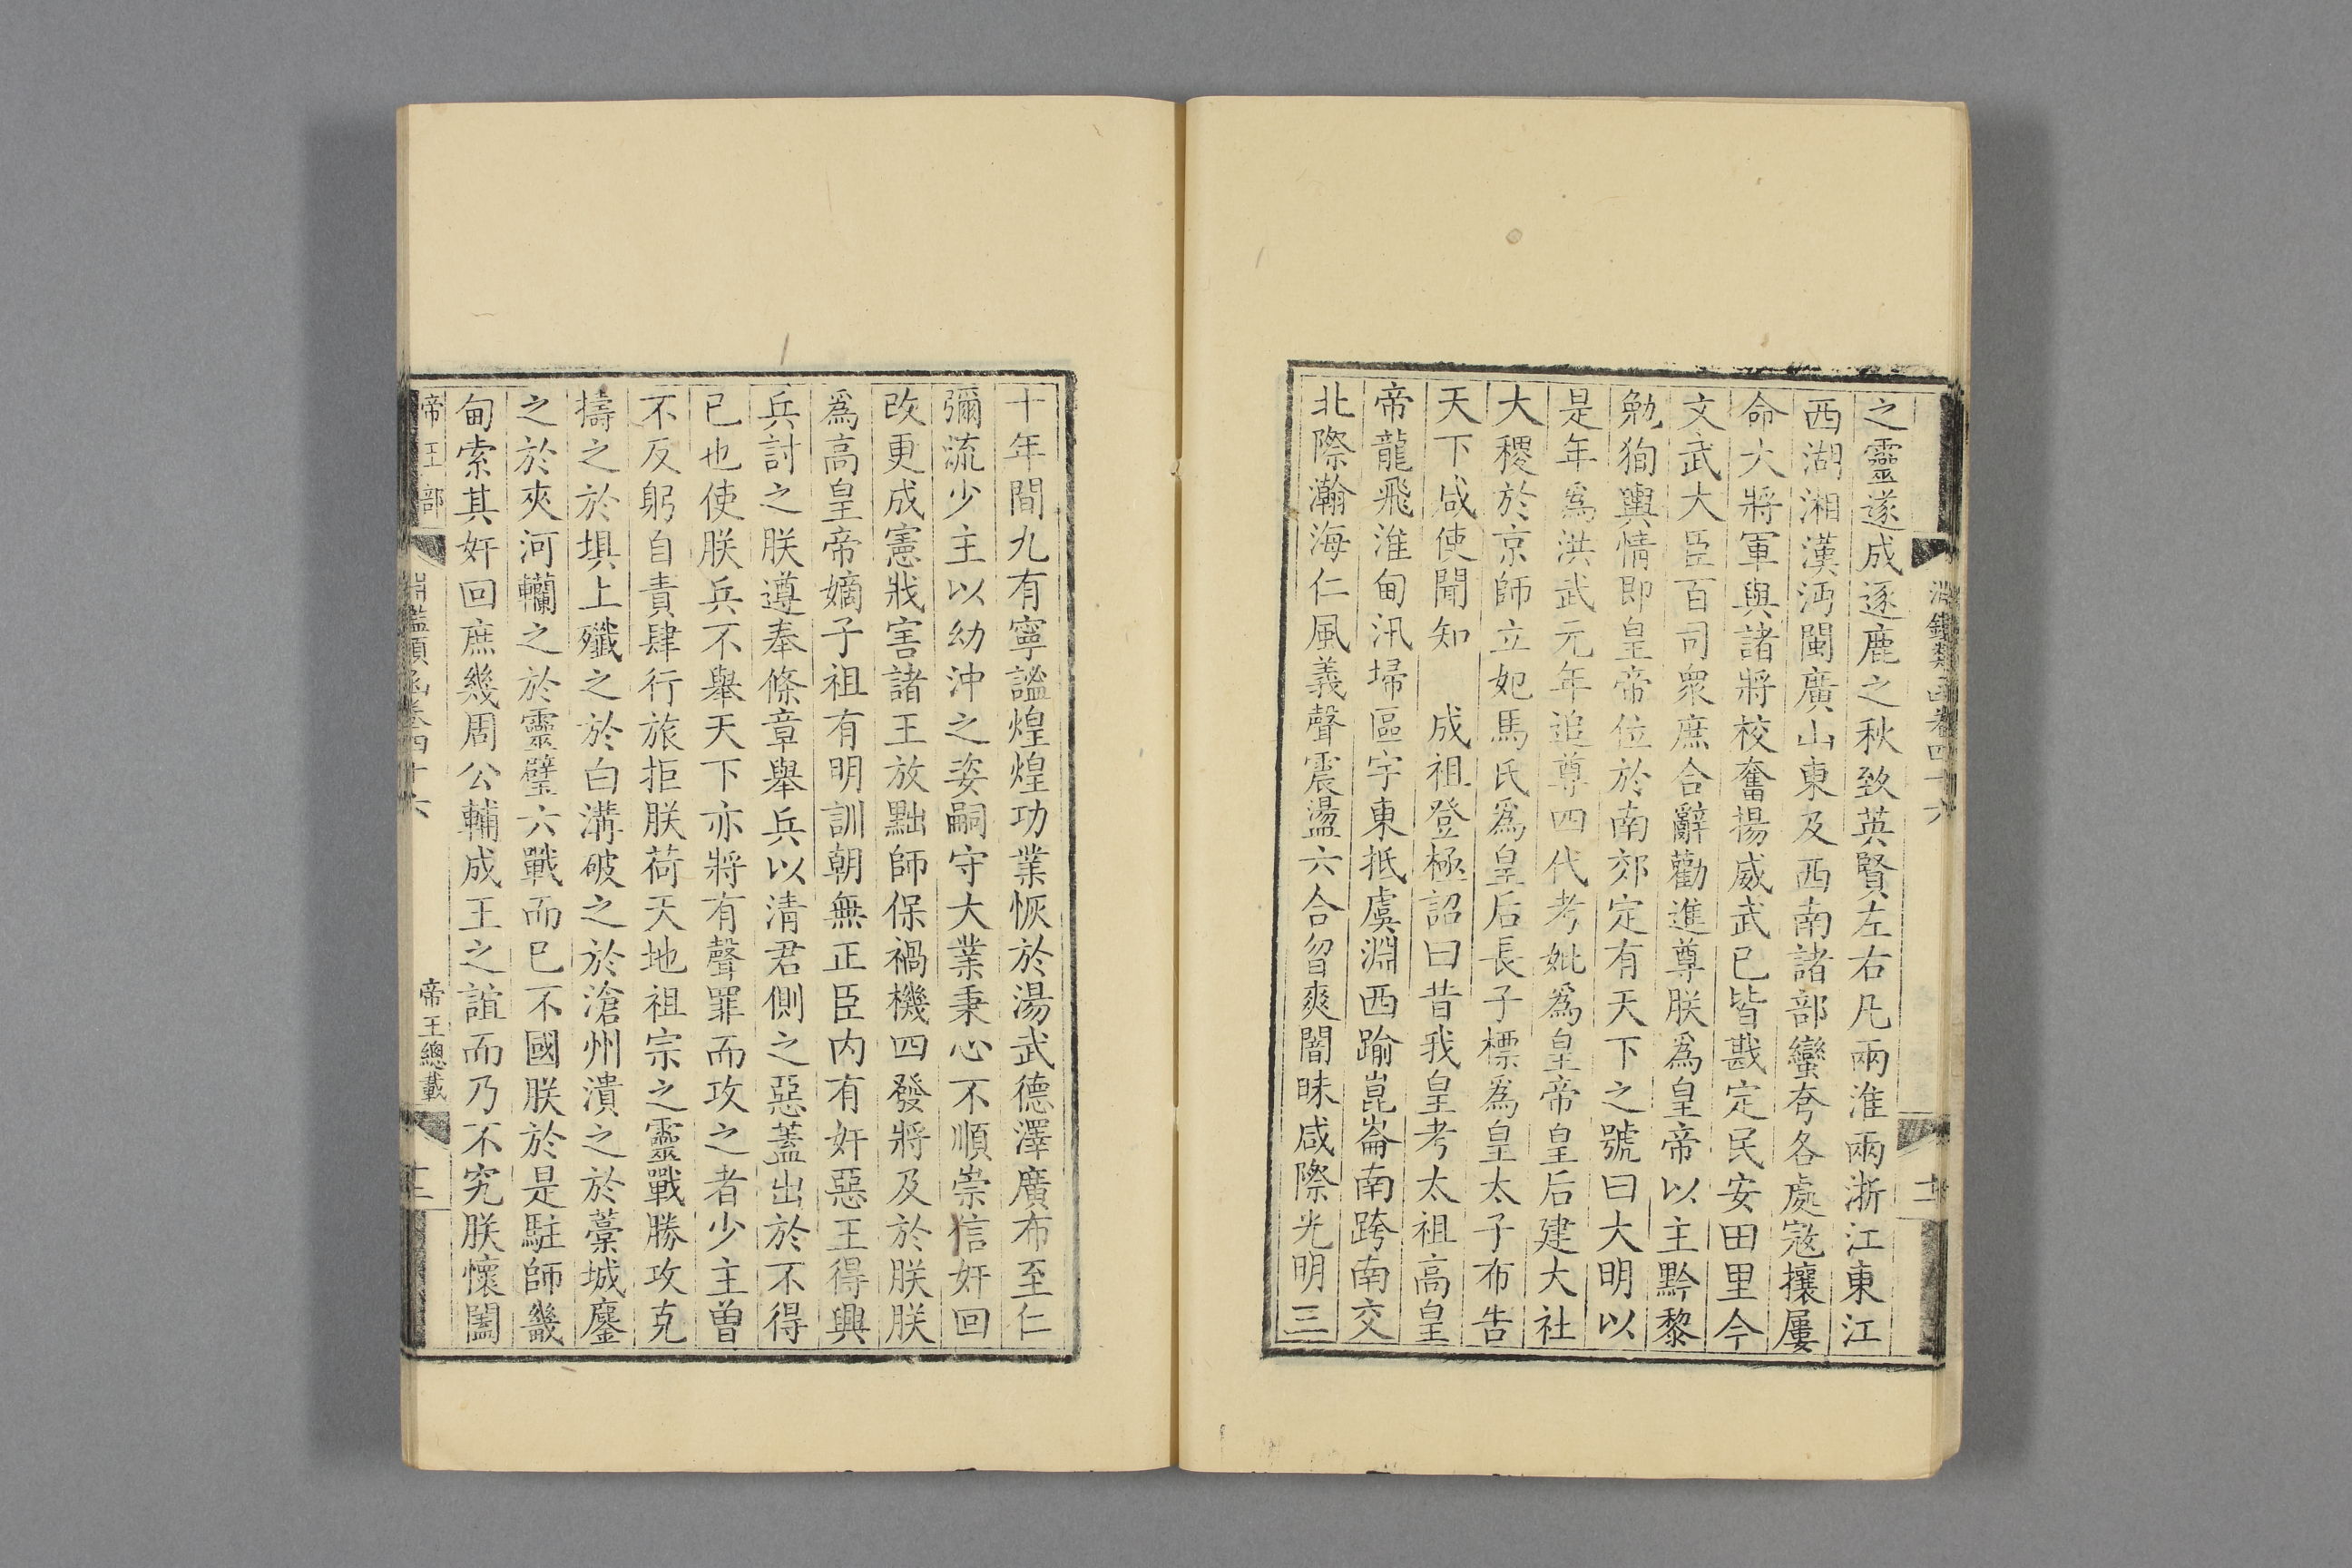 之靈遂成逐鹿之秋致英賢左右凡兩淮兩浙江東江
西湖湘漢沔閩廣山東及西南諸部蠻夸各處寇攘屢
命大將軍與諸將校奮揚威武已皆戡定民安田里今
文武大臣百司衆庶合辭勸進尊朕爲皇帝以主黔黎
勉狥輿情即皇帝位於南郊定有天下之號曰大明以
是年爲洪武元年追尊四代考妣爲皇帝皇后建大社
大稷於京師立妃馬氏爲皇后長子標爲皇太子布告
天下咸使聞知 成祖登極詔曰昔我皇考太祖高皇
帝龍飛淮甸汛埽區宇東抵虞淵西踰崑崙南跨南交
北際瀚海仁風義聲震盪六合曶爽闇昧咸際光明三
十年間九有寧謐煌煌功業恢於湯武德澤廣布至仁
彌流少主以幼沖之姿嗣守大業秉心不順崇信奸回
改更成憲戕害諸王放黜師保禍機四發將及於朕朕
爲高皇帝嫡子祖有明訓朝無正臣内有奸惡王得興
兵討之朕遵奉條章舉兵以清君側之惡蓋出於不得
已也使朕兵不舉天下亦將有聲罪而攻之者少主曾
不反躬自責肆行旅拒朕荷天地祖宗之靈戰勝攻克
擣之於埧上殲之於白溝破之於滄州潰之於藁城鏖
之於夾河轥之於靈璧六戰而已不國朕於是駐師畿
甸索其奸回庶幾周公輔成王之誼而乃不究朕懷闔
帝王部 淵鑑類函卷四十六 帝王總載